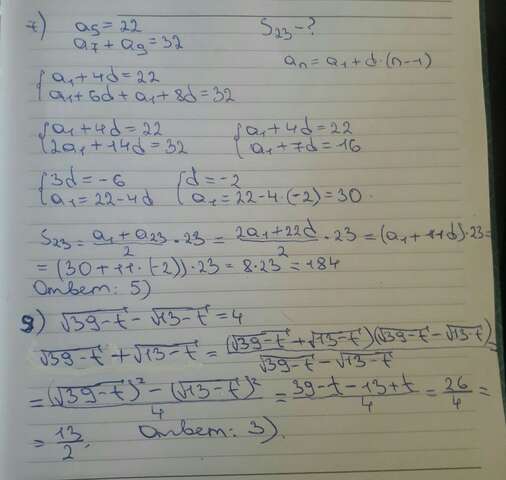 7) a₅ = 22 S₂₃ - ?
a₇ + a₉ = 32
aₙ = a₁ + d·(n-1)
{ a₁ + 4d = 22
a₁ + 6d + a₁ + 8d = 32
{ a₁ + 4d = 22 { a₁ + 4d = 22
2a₁ + 14d = 32 a₁ + 7d = 16
{ 3d = -6 { d = -2
a₁ = 22 - 4d a₁ = 22 - 4·(-2) = 30
S₂₃ = (a₁ + a₂₃)/2 · 23 = (2a₁ + 22d)/2 · 23 = (a₁ + 11d)·23 =
= (30 + 11·(-2))·23 = 8·23 = 184
Ответ: 5)
9) √(39-t) - √(13-t) = 4
√(39-t) + √(13-t) = (√(39-t) + √(13-t))(√(39-t) - √(13-t))/(√(39-t) - √(13-t)) =
= ((√(39-t))² - (√(13-t))²)/4 = (39-t-13+t)/4 = 26/4 =
= 13/2. Ответ: 3).